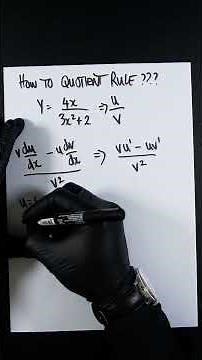 HOW TO QUOTIENT RULE ???
y = 4x / 3x²+2 ⇒ u / v
v du/dx - u dv/dx / v² ⇒ vu' - uv' / v²
u =